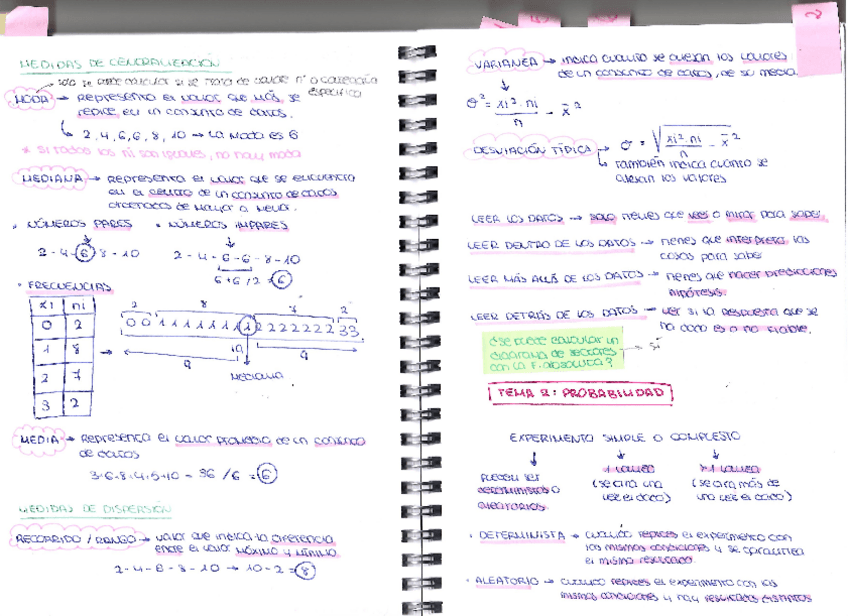 MEDIDAS DE CENTRALIZACIÓN
solo se puede calcular si se trata de valor nº o categoría
específica
MODA → REPRESENTA EL VALOR QUE MÁS SE
REPITE EN UN CONJUNTO DE DATOS.
↳ 2, 4, 6, 6, 8, 10 → LA MODA ES 6
* SI TODOS LOS ni SON IGUALES, NO HAY MODA
MEDIANA → REPRESENTA EL VALOR QUE SE ENCUENTRA
EN EL CENTRO DE UN CONJUNTO DE DATOS
ORDENADOS DE MAYOR A MENOR.
• NÚMEROS PARES • NÚMEROS IMPARES
2 - 4 - 6 - 8 - 10 2 - 4 - 6 - 6 - 8 - 10
6+6/2 = 6
• FRECUENCIAS
xi ni
0 2
1 8
2 7
3 2
2 8 7 2
0 0 1 1 1 1 1 1 1 1 2 2 2 2 2 2 2 3 3
9 9
MEDIANA
MEDIA → REPRESENTA EL VALOR PROMEDIO DE UN CONJUNTO
DE DATOS
3·6·8·4·5·10 - 36 / 6 = 6
MEDIDAS DE DISPERSIÓN
RECORRIDO / RANGO → VALOR QUE INDICA LA DIFERENCIA
ENTRE EL VALOR MÁXIMO Y MÍNIMO
2 - 4 - 6 - 3 - 10 → 10 - 2 = 8
VARIANZA → INDICA CUANTO SE ALEJAN LOS VALORES
DE UN CONJUNTO DE DATOS, DE SU MEDIA.
σ² = xi²·ni / n - x̄²
DESVIACIÓN TÍPICA → σ = √ xi²·ni / n - x̄²
↳ TAMBIÉN INDICA CUANTO SE
ALEJAN LOS VALORES
LEER LOS DATOS → SOLO TIENES QUE LEER O MIRAR PARA SABER.
LEER DENTRO DE LOS DATOS → TIENES QUE INTERPRETAR LAS
COSAS PARA SABER
LEER MÁS ALLÁ DE LOS DATOS → TIENES QUE HACER PREDICCIONES
HIPÓTESIS.
LEER DETRÁS DE LOS DATOS → VER SI LA RESPUESTA QUE SE
HA DADO ES O NO FIABLE.
¿SE PUEDE CALCULAR UN
DIAGRAMA DE SECTORES
CON LA F. ABSOLUTA? → SÍ
TEMA 2: PROBABILIDAD
EXPERIMENTO SIMPLE O COMPUESTO
PUEDEN SER
DETERMINISTAS O
ALEATORIOS
1 LANZA
(SE TIRA UNA
VEZ EL DADO)
>1 LANZA
(SE TIRA MÁS DE
UNA VEZ EL DADO)
• DETERMINISTA → CUANDO REPITES EL EXPERIMENTO CON
LAS MISMAS CONDICIONES Y SE GARANTIZA
EL MISMO RESULTADO
• ALEATORIO → CUANDO REPITES EL EXPERIMENTO CON LAS
MISMAS CONDICIONES Y HAY RESULTADOS DISTINTOS